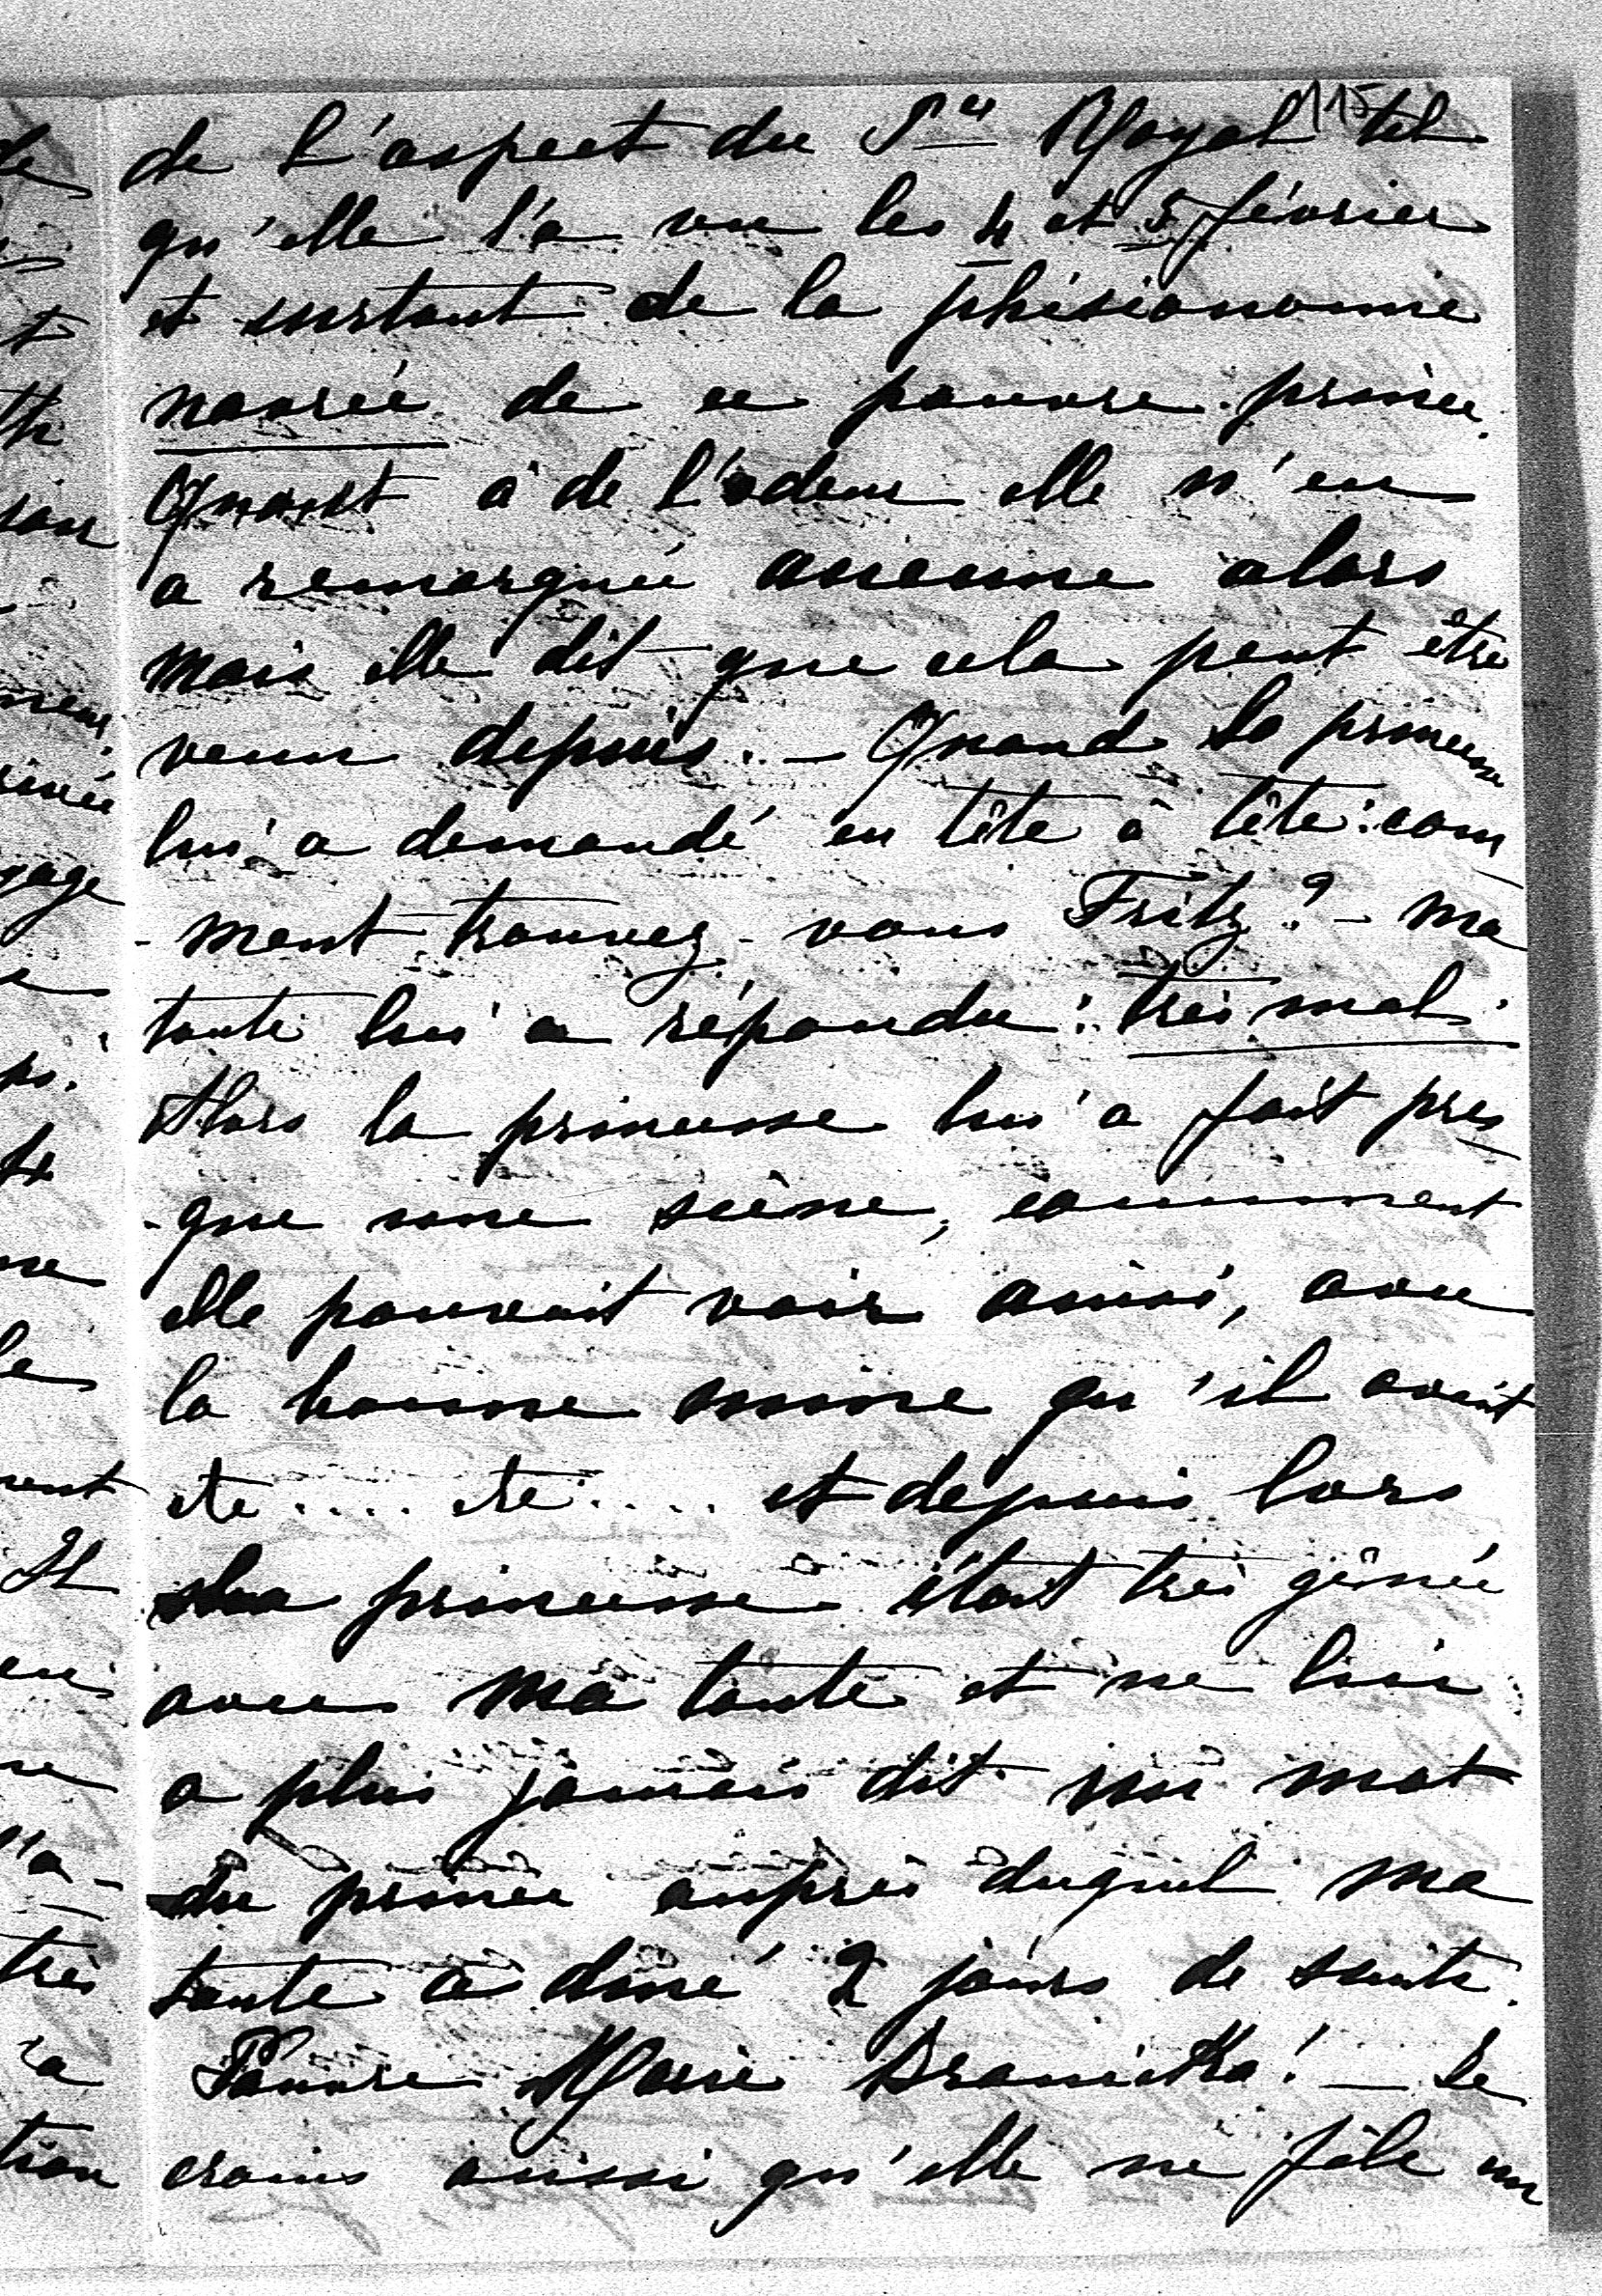 115
de l'aspect du Pce Royal tel
qu'elle l'a vu les 4 et 5 février
et surtout de la phisionomie
navrée de ce pauvre prince.
Quant à de l'odeur elle n'en
a remarquée aucune alors
mais elle dit que cela peut être
venu depuis. – Quand la princesse
lui a demandé en tête à tête : com
- ment trouvez-vous Fritz ? – ma
tante lui a répondu : très mal.
Alors la princesse lui a fait pres
- que une scène, comment
elle pouvait voir ainsi, avec
la bonne mine qu'il avait
etc .... etc .... et depuis lors
la princesse était très gênée
avec ma tante et ne lui
a plus jamais dit un mot
du prince auprès duquel ma
tante a diné 2 jours de suite.
Pauvre Marie Branicka ! – Je
crains aussi qu'elle ne file un